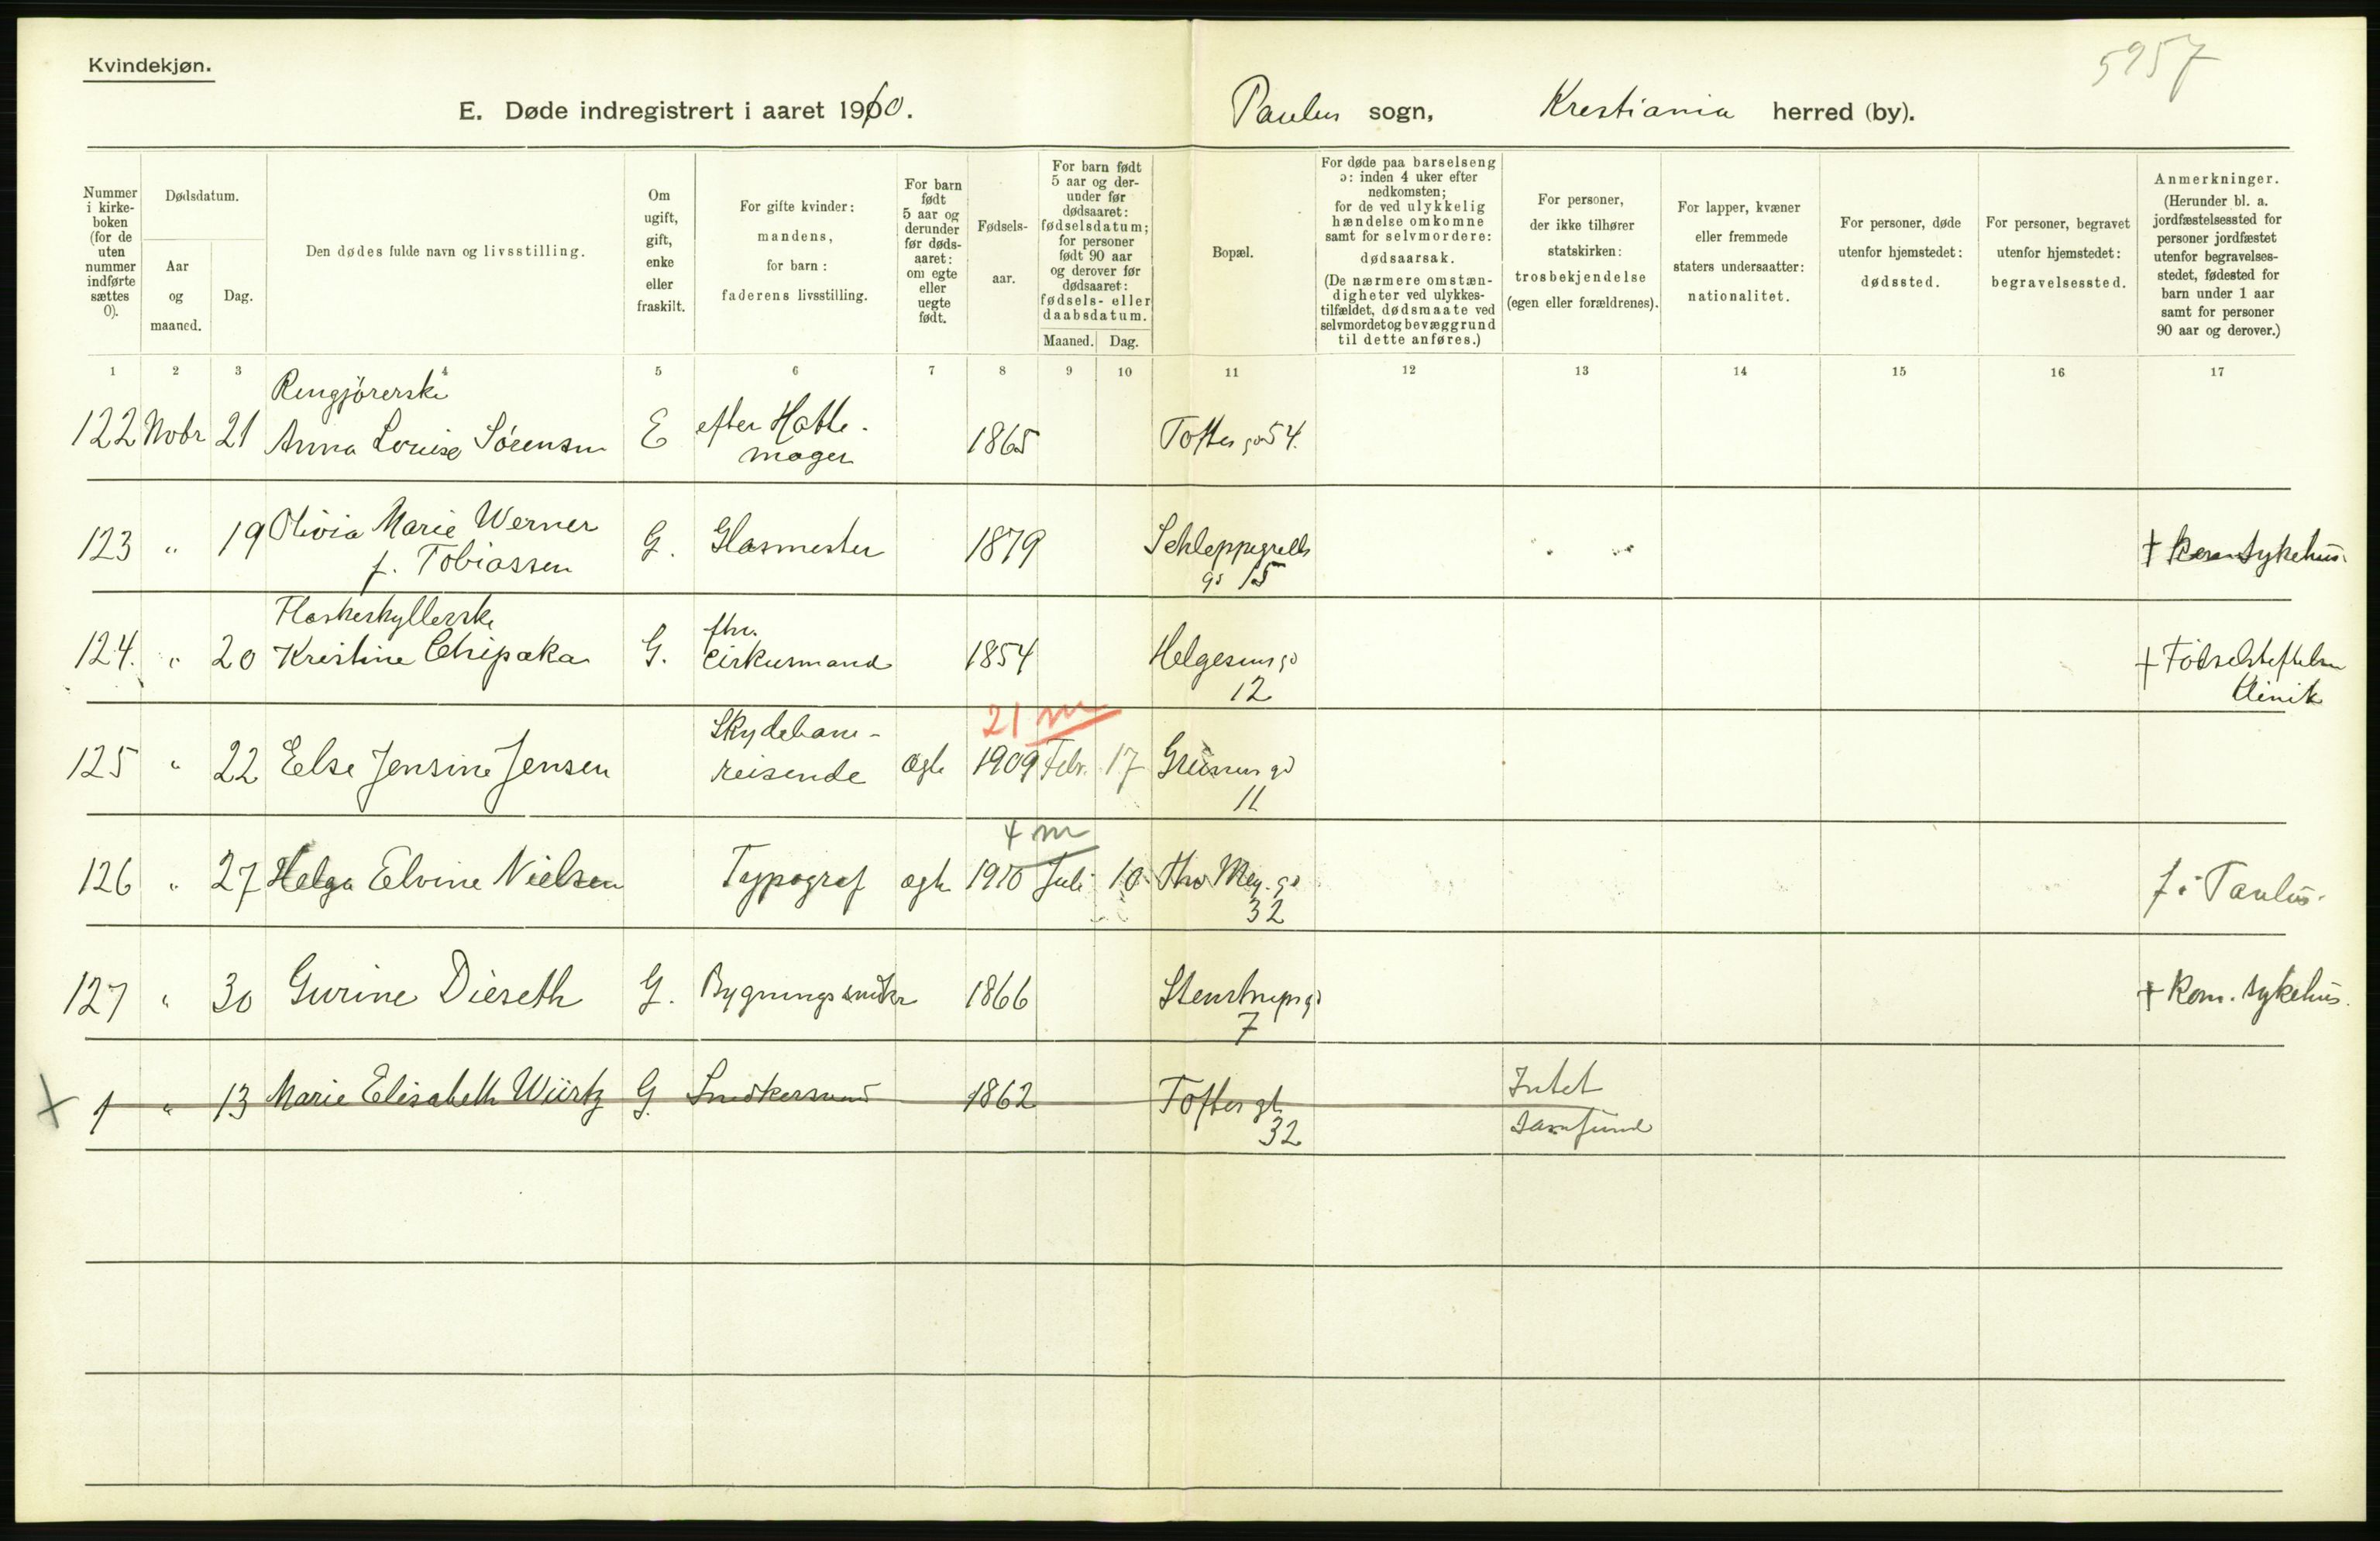 5957
Kvindekjøn.
E. Døde indregistrert i aaret 1910.
Paulus sogn, Krestiania herred (by).
Nummer i kirkeboken (for de uten nummer indførte sættes 0).
Dødsdatum.
Aar og maaned.
Dag.
Den dødes fulde navn og livsstilling.
Om ugift, gift, enke eller fraskilt.
For gifte kvinder: mandens, for barn: faderens livsstilling.
For barn født 5 aar og derunder før dødsaaret: om egte eller uegte født.
Fødselsaar.
For barn født 5 aar og derunder før dødsaaret: fødselsdatum; for personer født 90 aar og derover før dødsaaret: fødsels- eller daabsdatum.
Maaned. Dag.
Bopæl.
For døde paa barselseng ɔ: inden 4 uker efter nedkomsten; for de ved ulykkelig hændelse omkomne samt for selvmordere: dødsaarsak.
(De nærmere omstændigheter ved ulykkestilfældet, dødsmaate ved selvmordet og bevæggrund til dette anføres.)
For personer, der ikke tilhører statskirken: trosbekjendelse (egen eller forældrenes).
For lapper, kvæner eller fremmede staters undersaatter: nationalitet.
For personer, døde utenfor hjemstedet: dødssted.
For personer, begravet utenfor hjemstedet: begravelsessted.
Anmerkninger.
(Herunder bl. a. jordfæstelsessted for personer jordfæstet utenfor begravelsesstedet, fødested for barn under 1 aar samt for personer 90 aar og derover.)
1 2 3 4 5 6 7 8 9 10 11 12 13 14 15 16 17
Rengjörerske
122 Nobr 21 Anna Louise Sörensen E efter Hattemager 1865 Toftes g 54.
123 " 19 Olivia Marie Werner f. Tobiassen G. Glasmester 1879 Schleppegrells gd 15 † Kom sykehus.
Flaskeskyllerske
124. " 20 Kristine Chripaka G. fhv. Cirkusmand 1854 Helgesens gd 12 † Födselsstiftelsen klinik
21 m
125 " 22 Else Jensine Jensen Skydebanereisende ægte 1909 Febr. 17 Grüners gd 11
4 m
126 " 27 Helga Elvine Nielsen Typograf ægte 1910 Juli 10 Thv Mey. gd 32 f i Paulus.
127 " 30 Gurine Dieseth G. Bygningssnedker 1866 Stenstrups gd 7 † Kom. sykehus.
1 " 13 Marie Elisabeth Würtz G. Snedkersvend 1862 Toftes gt 32 Intet samfund